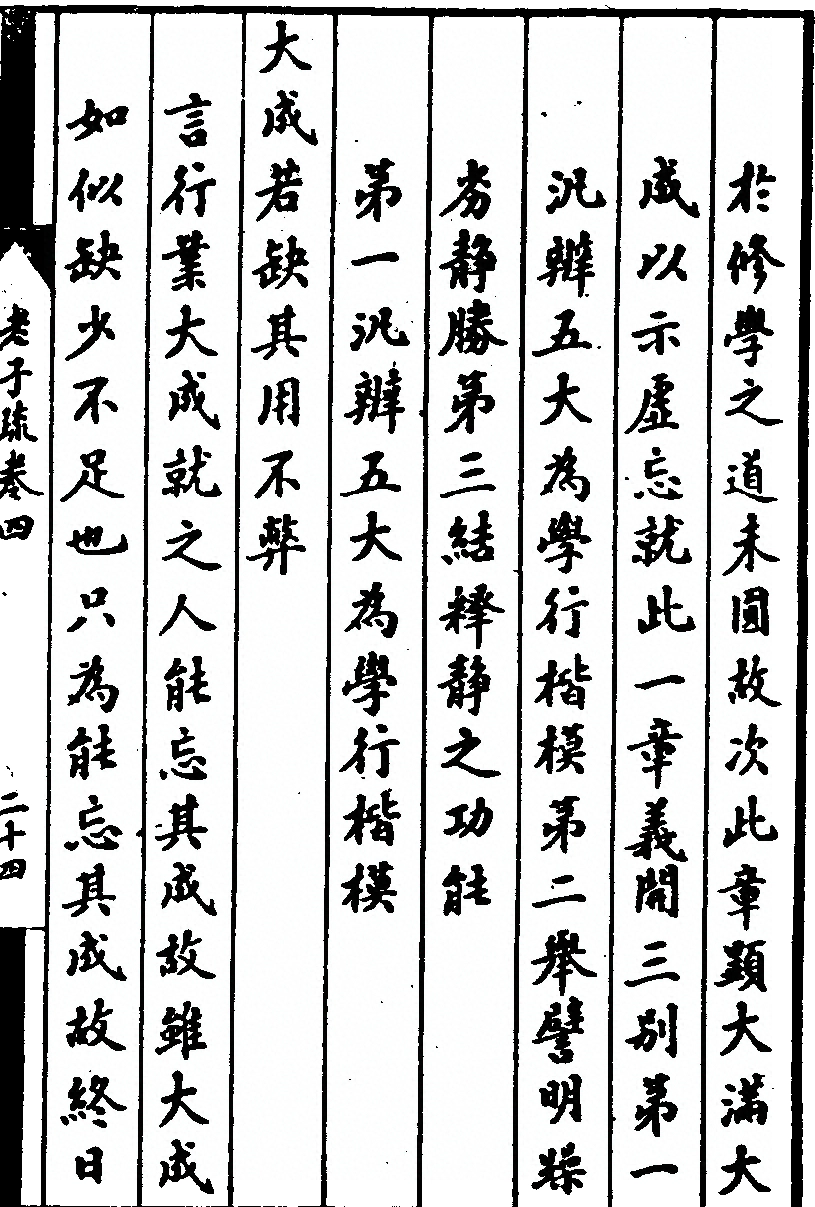 於修學之道未圓故次此章顯大滿大
成以示虛忘就此一章義開三別第一
汎辯五大為學行楷模第二舉譬明躁
劣靜勝第三結釋靜之功能
第一汎辯五大為學行楷模
大成若缺其用不弊
言行業大成就之人能忘其成故雖大成
如似缺少不足也只為能忘其成故終日
老子疏卷四
二十四